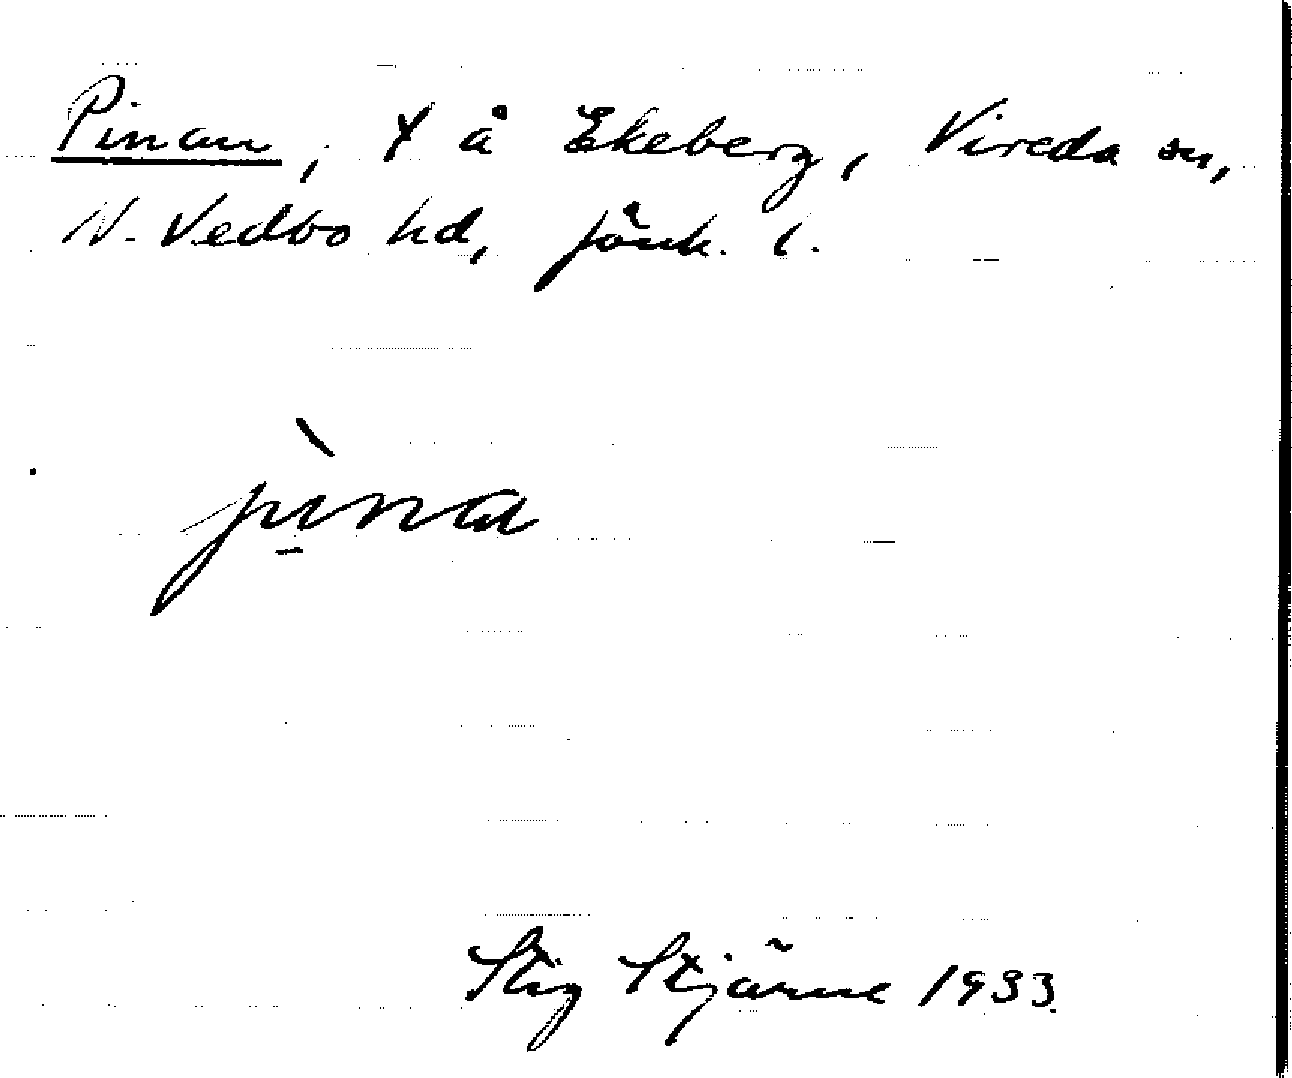 Pinan, x å Ekeberg, Vireda sn,
N. Vedbo hd, Jönk. l.
pìna
Stig Stjärne 1933